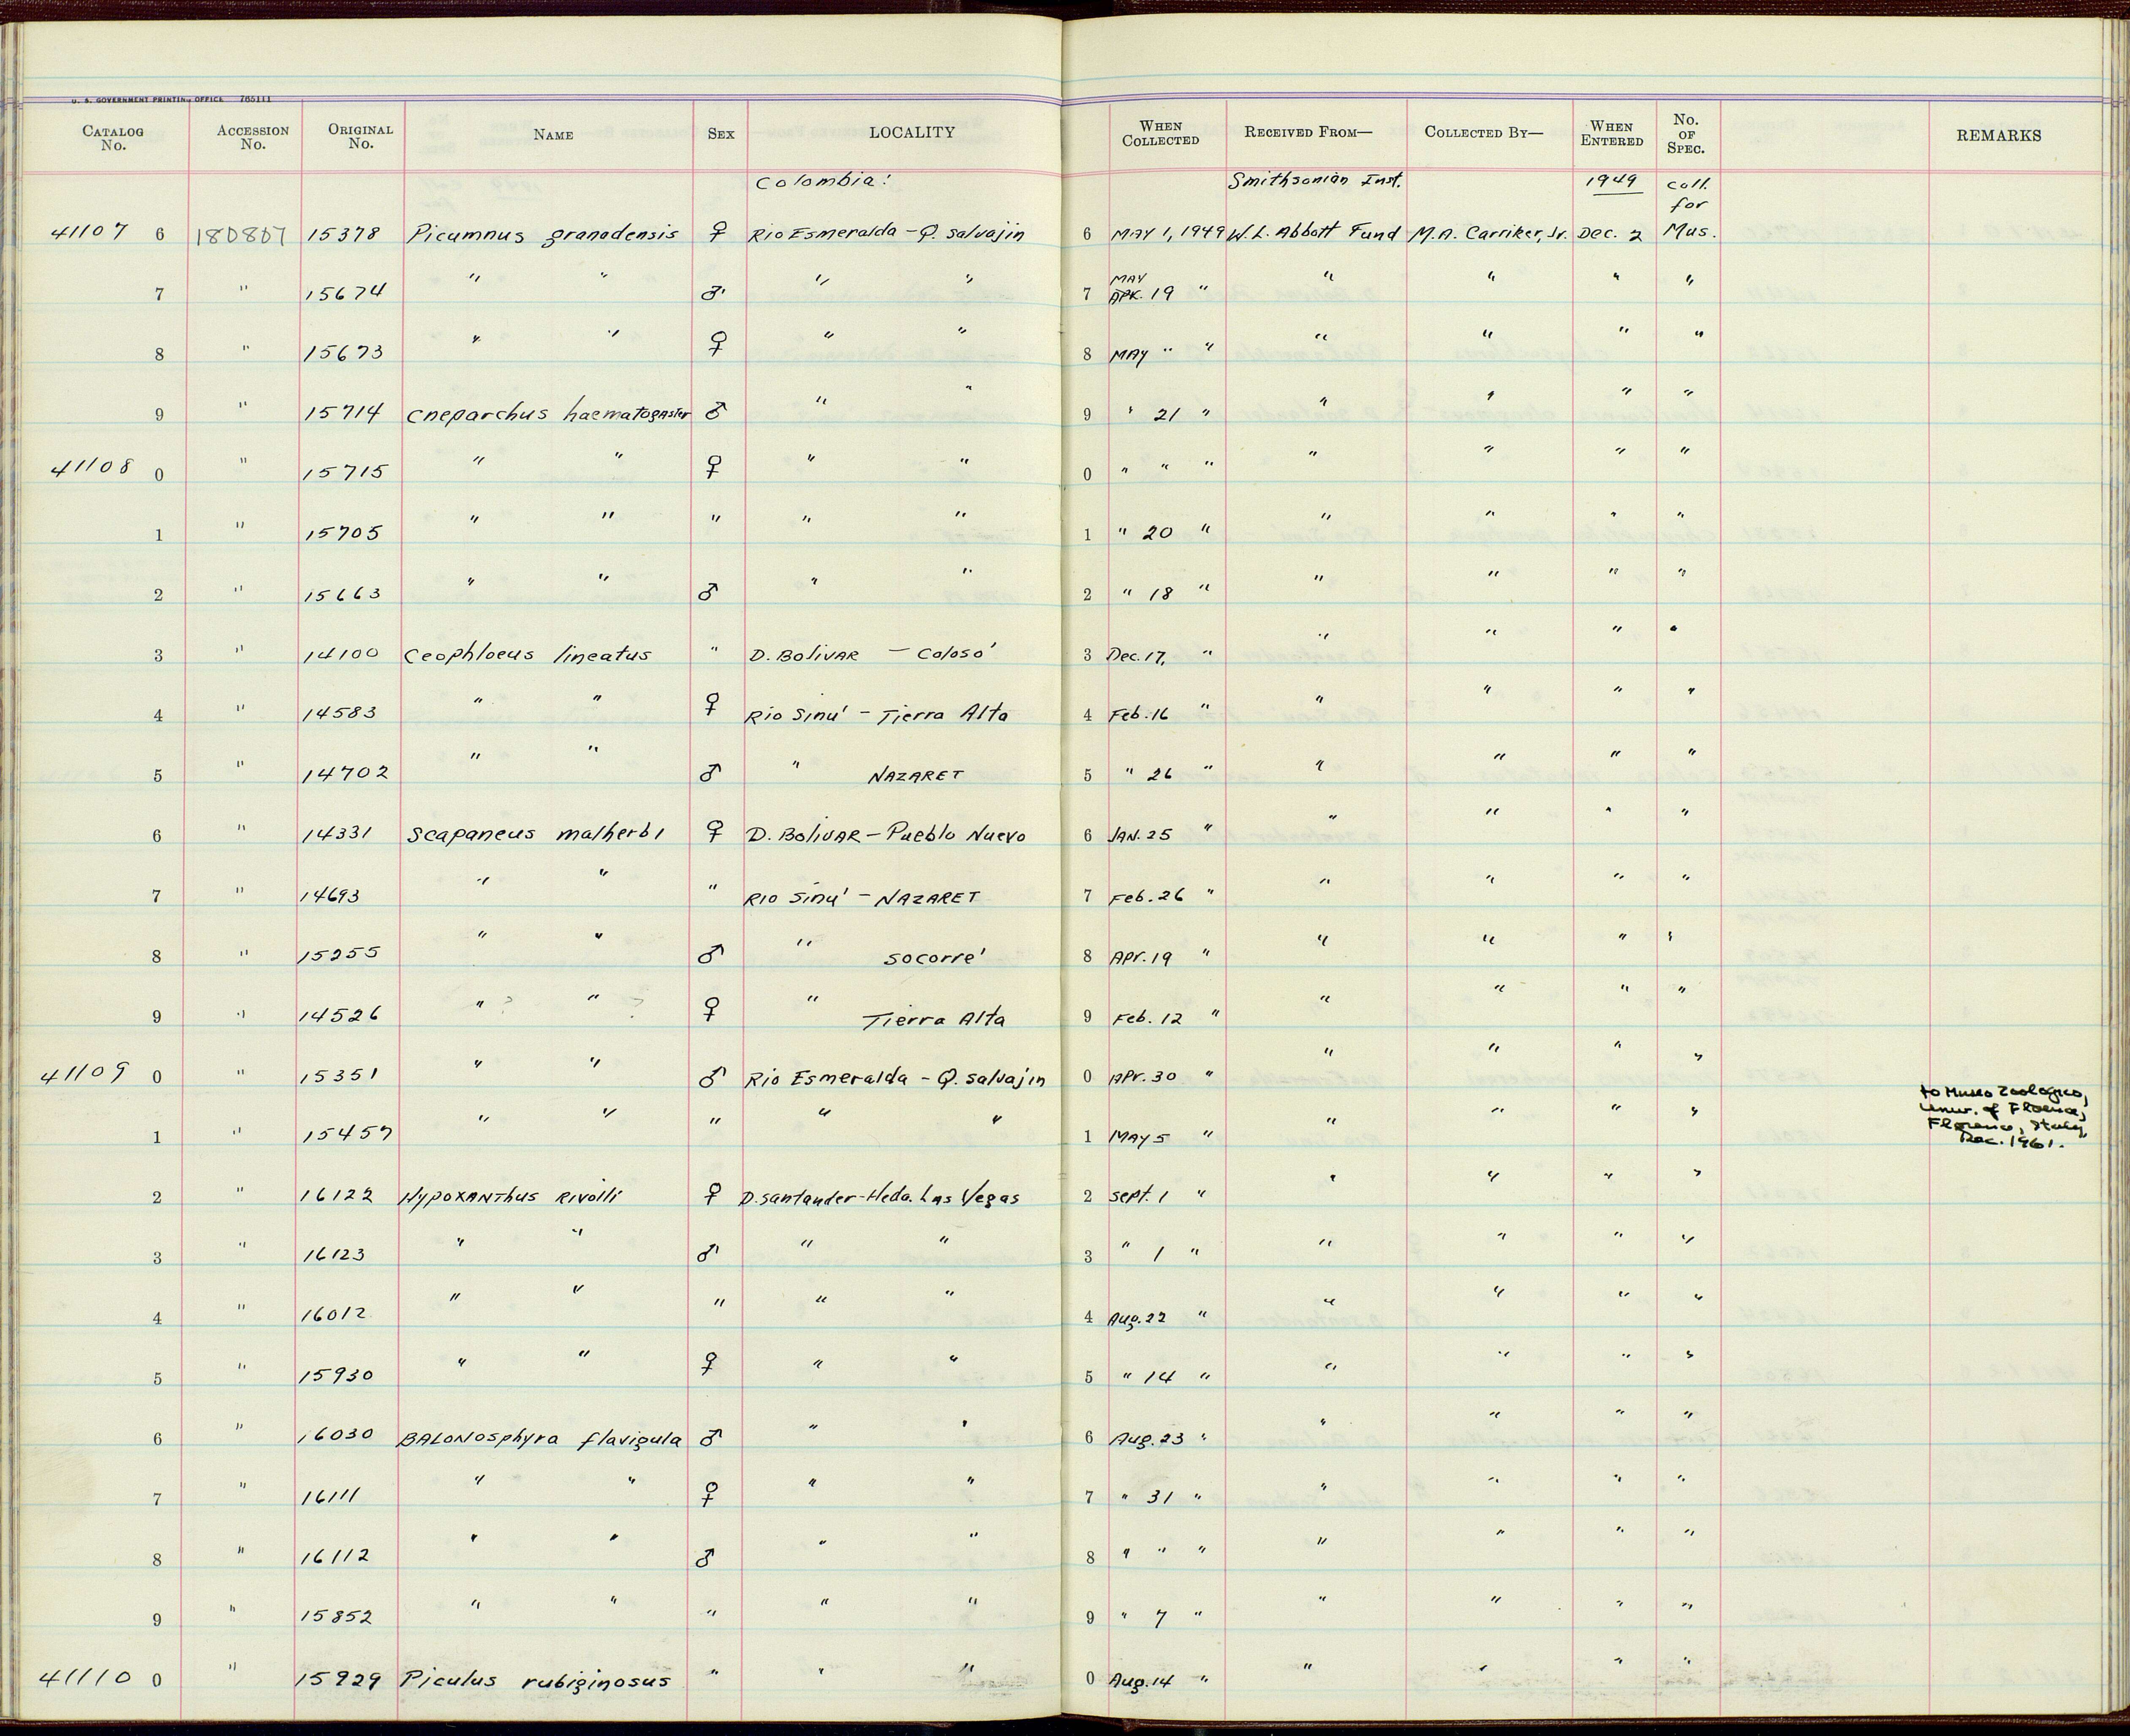 U. S. GOVERNMENT PRINTING OFFICE 765111
CATALOG No. ACCESSION No. ORIGINAL No. NAME SEX LOCALITY WHEN COLLECTED RECEIVED FROM— COLLECTED BY— WHEN ENTERED No. OF SPEC. REMARKS
Colombia: Smithsonian Inst. 1949 coll. for
41107 6 180807 15378 Picumnus granadensis ♀ Rio Esmeralda - Q. Salvajin 6 MAY 1, 1949 W. L. Abbott Fund M.A. Carriker, Jr. Dec. 2 Mus.
7 " 15674 " " ♂ " " 7 MAY APR. 19 " " " " "
8 " 15673 " " ♀ " " 8 MAY " " " " " "
9 " 15714 Cneparchus haematogaster ♂ " " 9 " 21 " " " " "
41108 0 " 15715 " " ♀ " " 0 " " " " " " "
1 " 15705 " " " " " 1 " 20 " " " " "
2 " 15663 " " ♂ " " 2 " 18 " " " " "
3 " 14100 Ceophloeus lineatus " D. BOLIVAR - Colosó 3 Dec. 17, " " " " "
4 " 14583 " " ♀ Rio Sinú - Tierra Alta 4 Feb. 16 " " " " "
5 " 14702 " " ♂ " NAZARET 5 " 26 " " " " "
6 " 14331 Scapaneus malherbi ♀ D. BOLIVAR - Pueblo Nuevo 6 JAN. 25 " " " " "
7 " 14693 " " " Rio Sinú - NAZARET 7 Feb. 26 " " " " "
8 " 15255 " " ♂ " Socorré 8 Apr. 19 " " " " "
9 " 14526 " ? " ? ♀ " Tierra Alta 9 Feb. 12 " " " " "
41109 0 " 15351 " " ♂ Rio Esmeralda - Q. Salvajin 0 Apr. 30 " " " " "
1 " 15457 " " " " " 1 MAY 5 " " " " " to Museo Zoologico,
Univ. of Florence,
Florence, Italy,
Dec. 1961.
2 " 16122 Hypoxanthus Rivolii ♀ D. Santander - Hcda. Las Vegas 2 Sept. 1 " " " " "
3 " 16123 " " ♂ " " 3 " 1 " " " " "
4 " 16012 " " " " " 4 Aug. 22 " " " " "
5 " 15930 " " ♀ " " 5 " 14 " " " " "
6 " 16030 BALONosphyra flavigula ♂ " " 6 Aug. 23 " " " " "
7 " 16111 " " ♀ " " 7 " 31 " " " " "
8 " 16112 " " ♂ " " 8 " " " " " " "
9 " 15852 " " " " " 9 " 7 " " " " "
41110 0 " 15929 Piculus rubiginosus " " " 0 Aug. 14 " " " " "